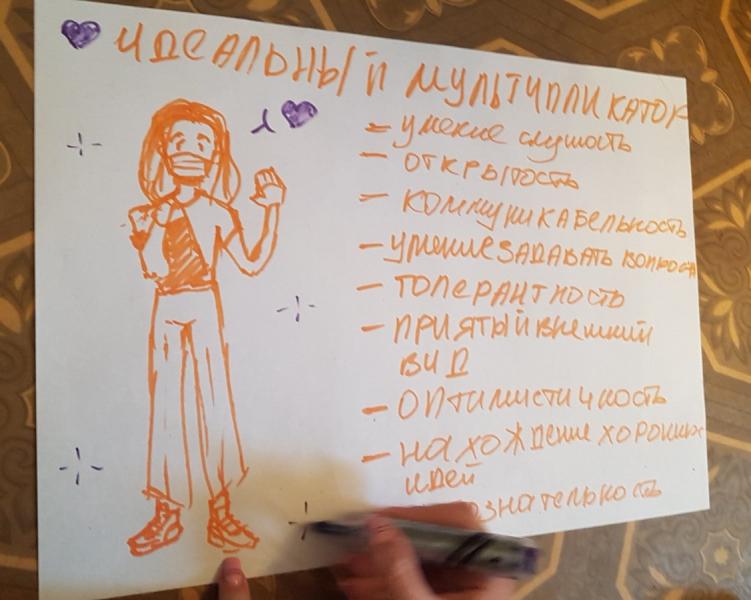 ИДЕАЛЬНЫЙ МУЛЬТИПЛИКАТОР
- умение слушость
- ОТКРЫТОСТЬ
- КОММУНИКАБЕЛЬНОСТЬ
- УМЕНИЕ ЗАДАВАТЬ ВОПРОСЫ
- ТОЛЕРАНТНОСТЬ
- ПРИЯТЫЙ ВНЕШНИЙ
ВИД
- ОПТИМИСТИЧНОСТЬ
- НАХОЖДЕНИЕ ХОРОШИХ
ИДЕЙ